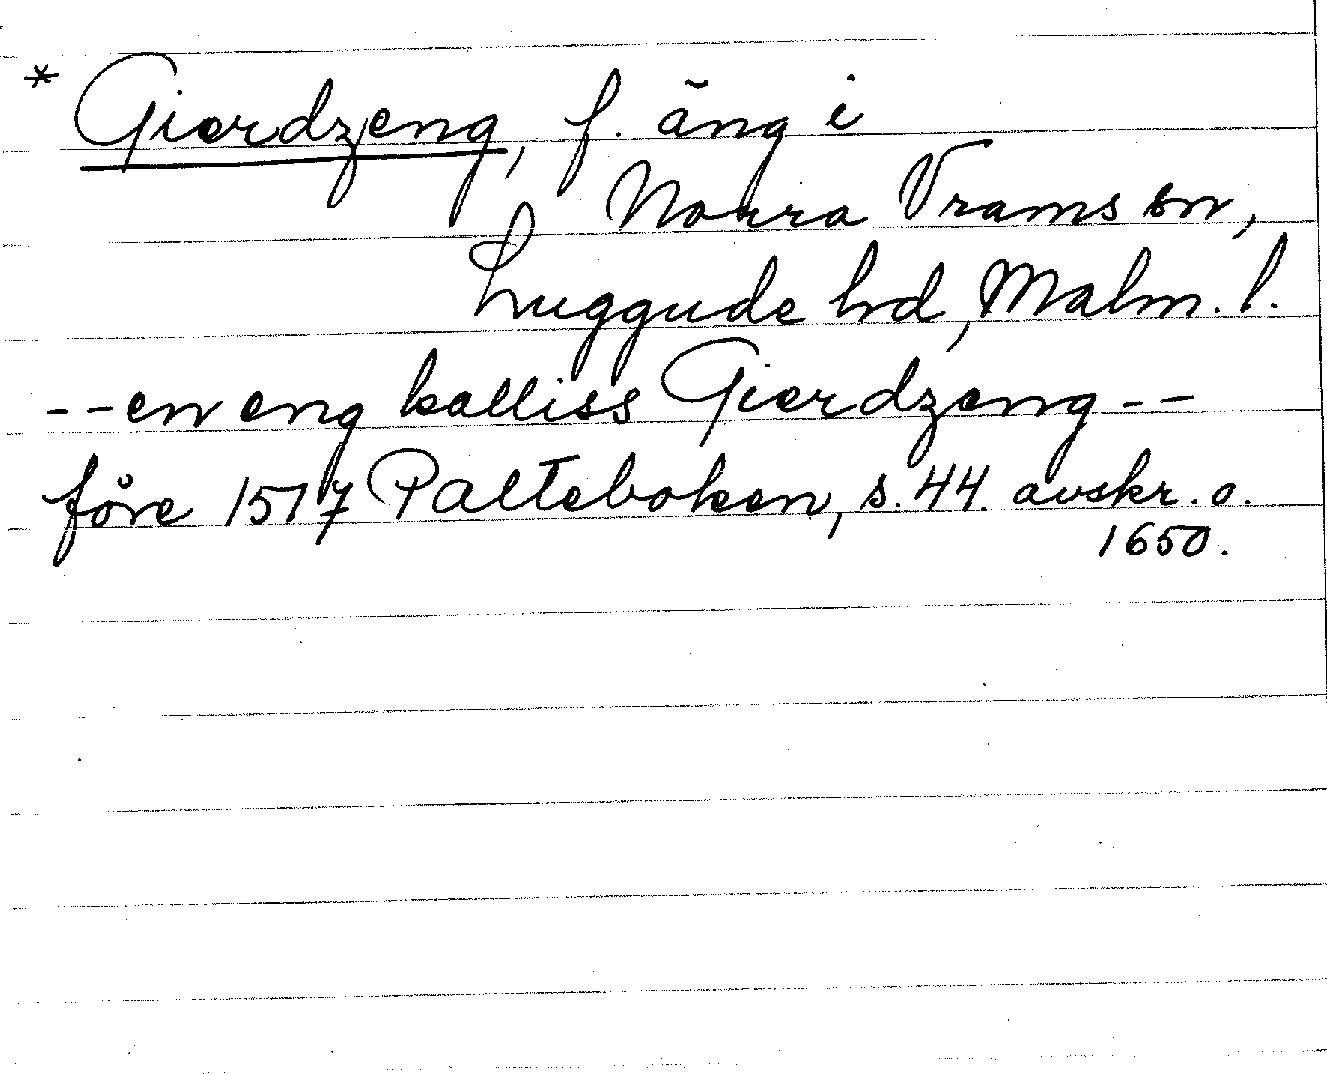 * Gierdzeng, f. äng i
Norra Vrams sn,
Luggude hd, Malm. l.
--en eng kalliss Gierdzeng--
före 1517 Palteboken, s. 44. avskr. o.
1650.